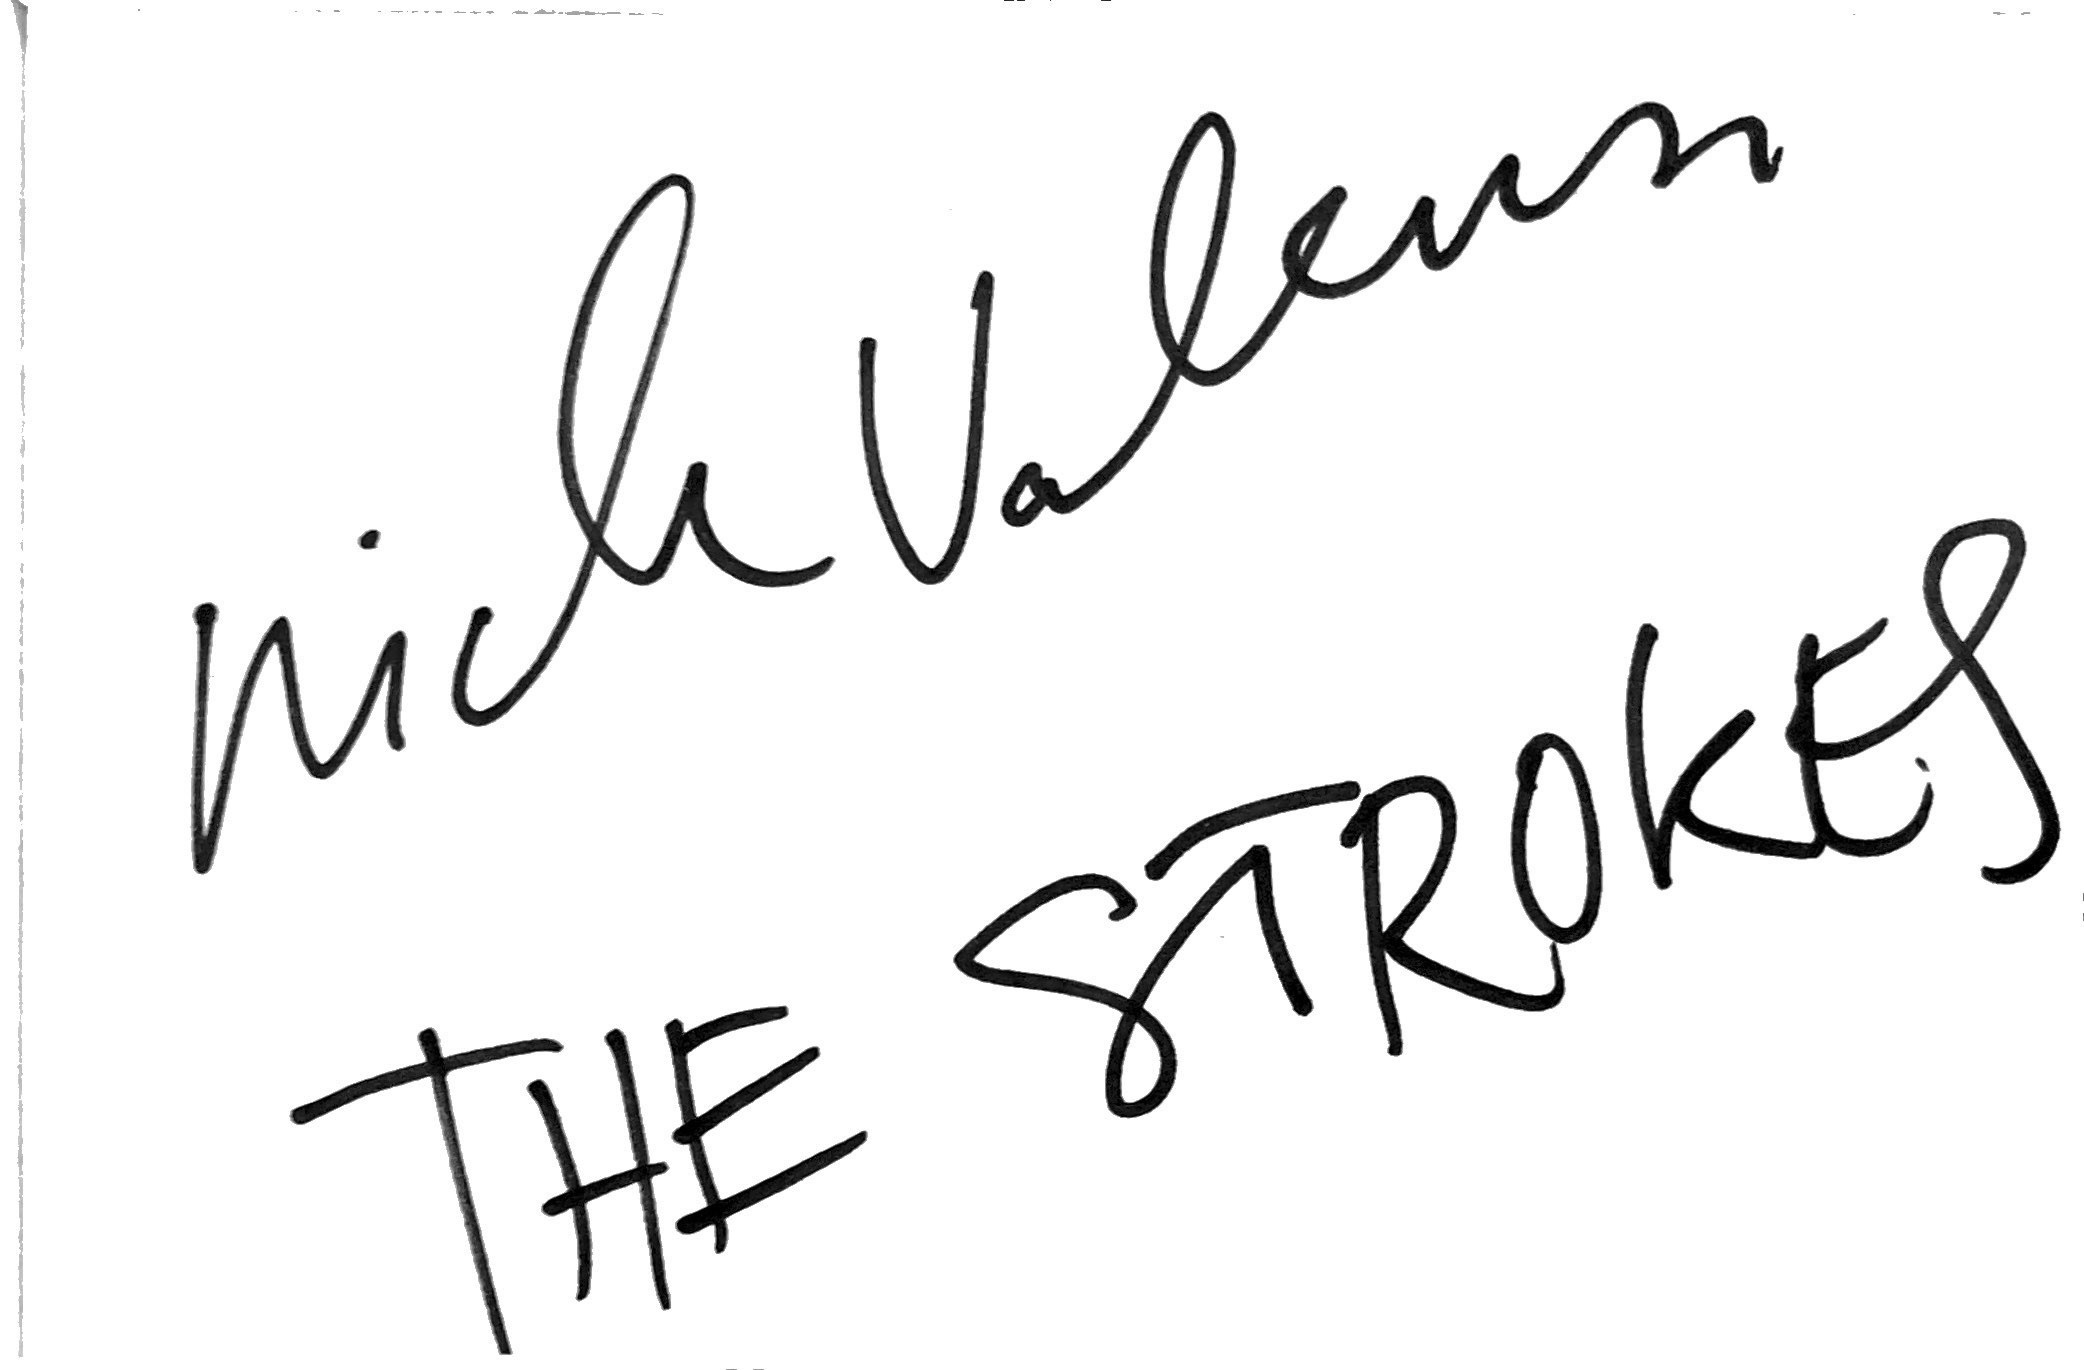 Nick Valensi
THE STROKES